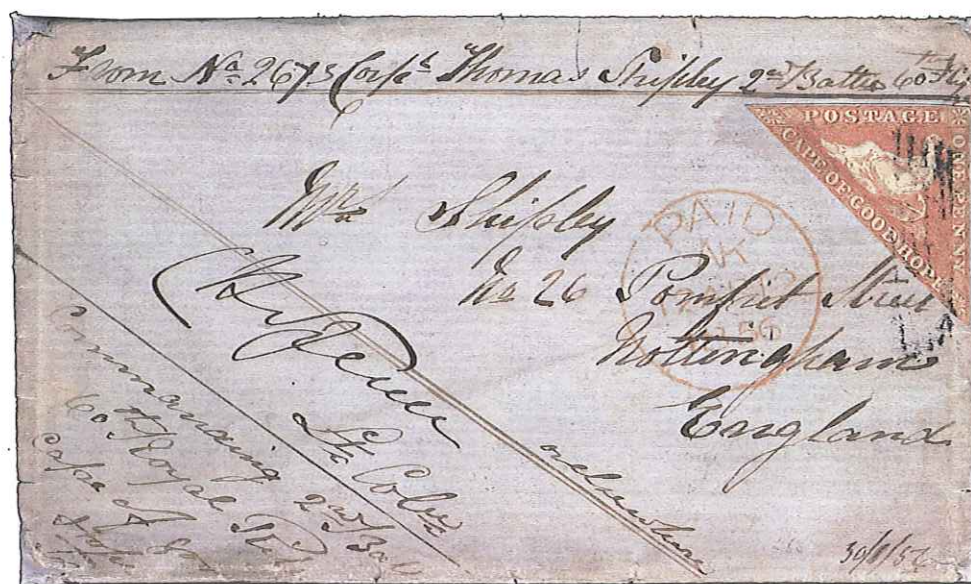 From No 2675 Corpl Thomas Shipley 2nd Battn 60th
POSTAGE
CAPE OF GOOD HOPE
ONE PENNY
Mrs Shipley
No 26 Pomfret Street
Nottingham
England
PAID
Lt Col
Commanding 2nd
60th Royal
Cape of